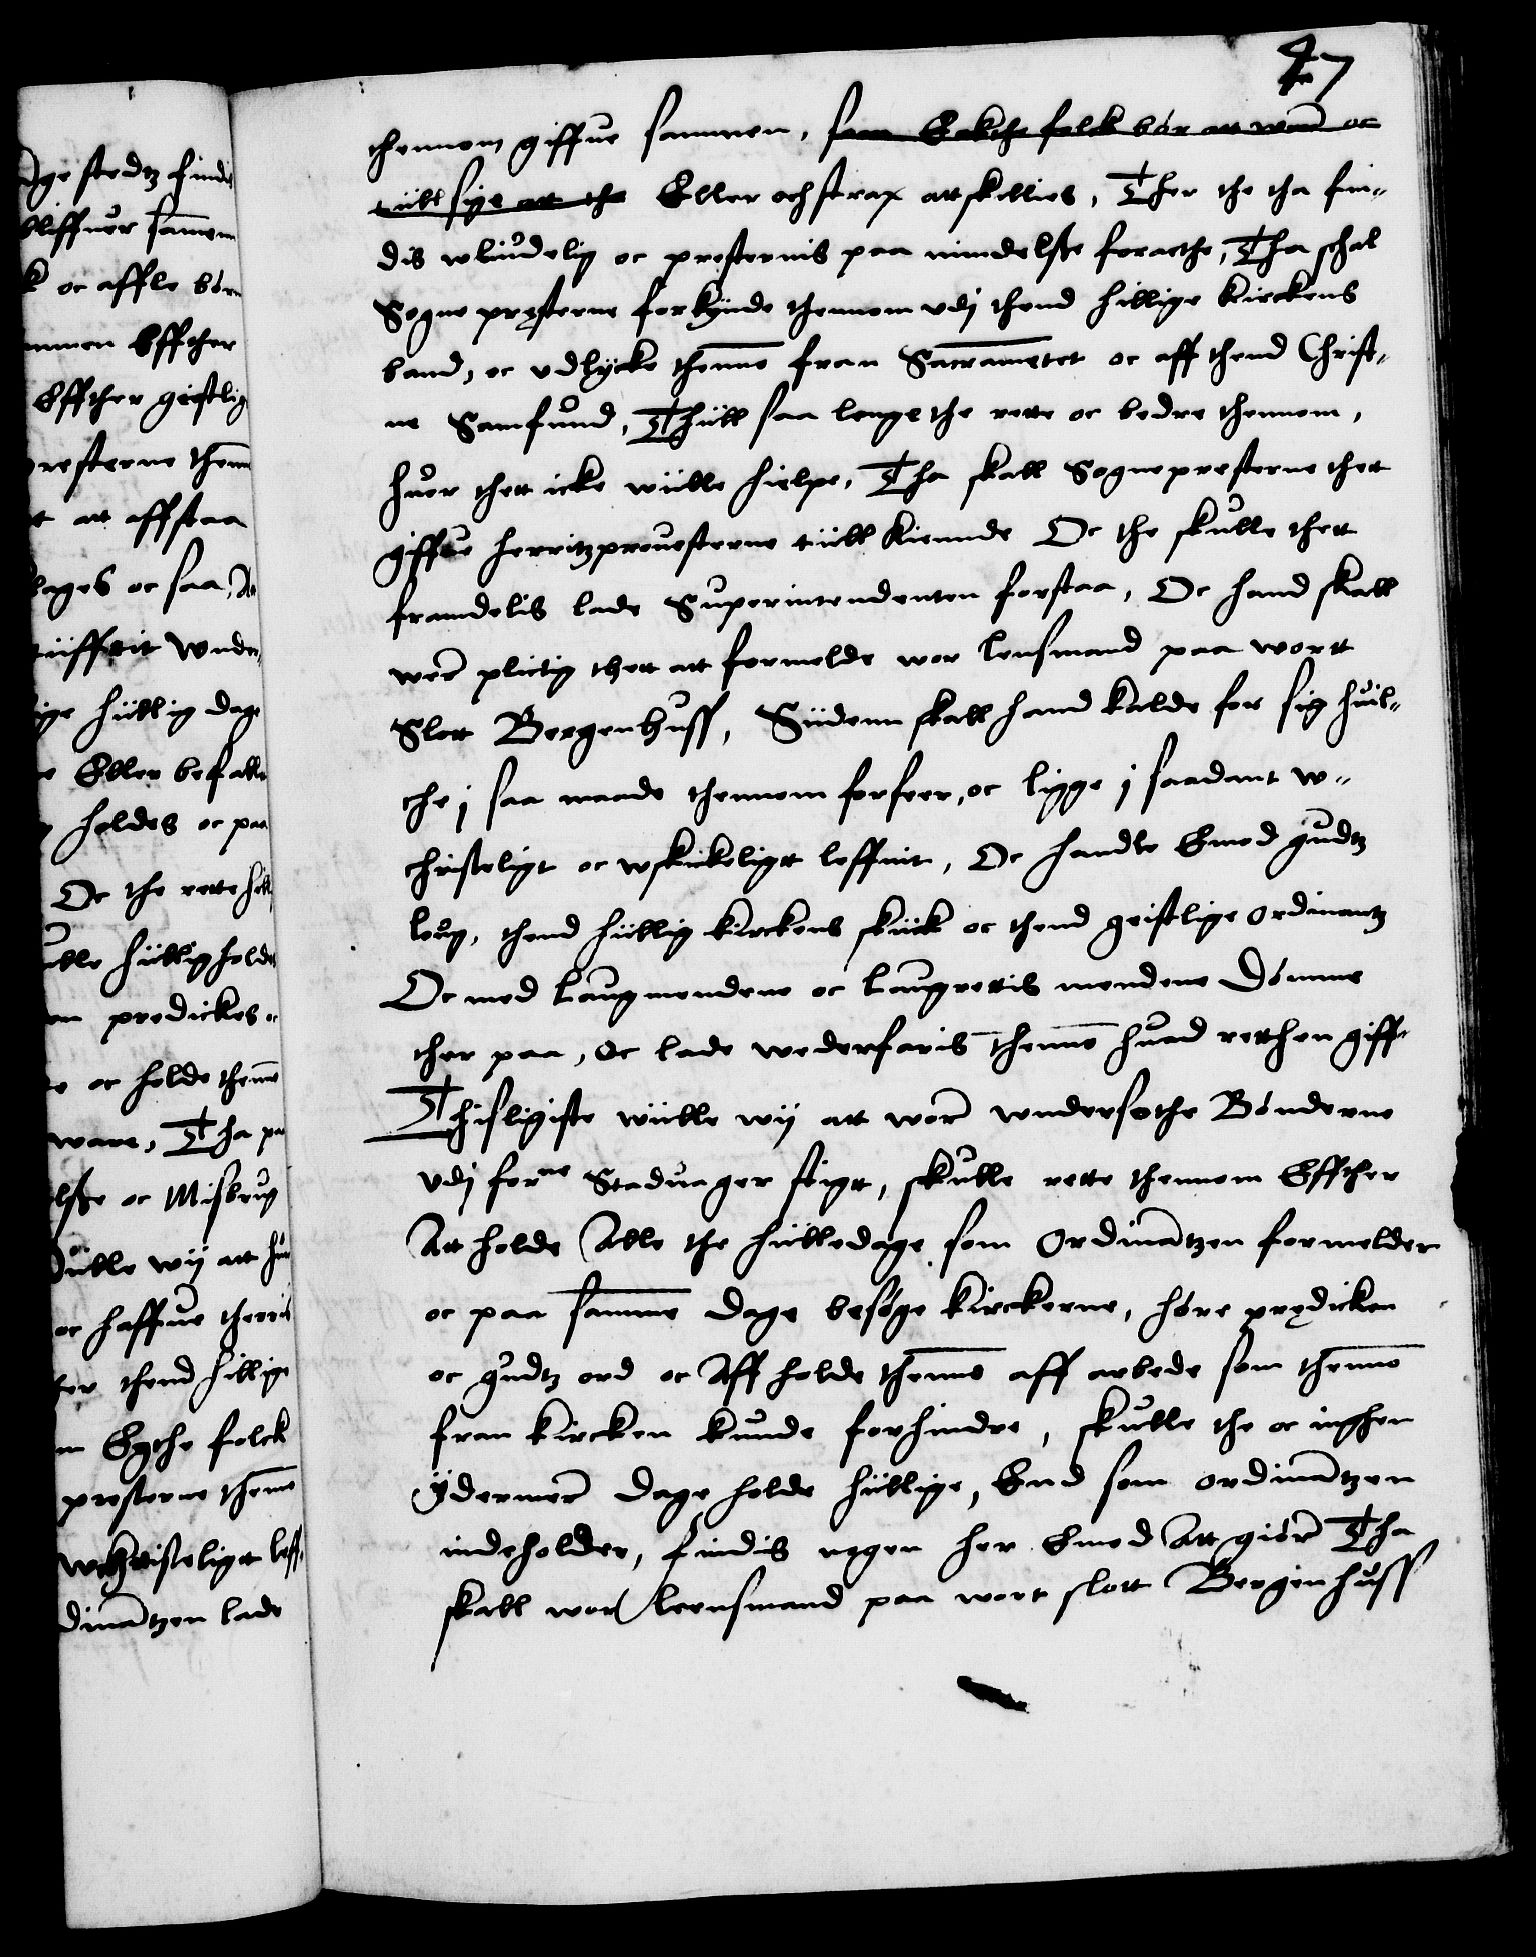 47
thennom giffue sammen, som Eckthe folck bór att were oc
tüll sige att the Eller och strax attskillies, Ther the tha fin-
dis wliudelig oc presternis paa mindelße foracthe, Tha schal
Sogne pręsterne forkynde thennom vdj thend hillige kirckens
band, oc vdlycke thenno fran Sacrametet oc aff thend Christ-
ne Samfund, Thüll saa lenge the rette oc bedre thennom,
huer thett icke wülle hielpe, Tha skall Sognepresterne thett
giffue herritzprouesterne tüll kiennde Oc the skulle thett
framdelis lade Superintendenten forstaa, Oc hand skall
were plictig thett att formelde wor lensmand paa wortt
Slott Bergenhuss, Siidenn skall hand kalde for sig huil-
che j saa maade thennom forseer, oc ligge j saadant w-
christeligt oc wskickeligtt leffnit, Oc handle Emod gudtz
loug, thend hüllig kirckens skick oc thend geistlige ordinantz
Oc med laugmendene oc laugrettis mendene dómme
ther paa, Oc lade wederfaris thenno huad retthen giff.
Thisligiste wülle wij att wore wndersothe Bónderne
vdj forne Staduager sogtt, skulle rette thennom Effther
Att holde Alle the hülledage som Ordinatzen formelder
oc paa samme dage besóge kirckerne, hóre prędicken
oc gudtz ord oc Aff holde thenno aff arbede som thenno
fran kircken kunde forhindre, skulle the oc inghen
ydermere dage holde hüllige, End som ordinatzen
indeholder, findis nogen her Emod Att gióre Tha
skall wor leensmand paa wort slott Bergenhuss
dge stedtz finde
bliffuer sammen
k oc affle bórn
mmen Effther
Effther geistlig
presterne thenno
t att affstaa
lages oc saa
wnder
ige hüllig dage
e Eller befalle
holdes oc paa
Oc the rette
ulle hülligholde
en predickes
e oc holde thenno
ware, Tha
lße oc Misbrug
wülle wij att
oc haffue therris
for thend hillige
m Egthe folck
presterne thenno
wchristeligtt leff.
dinatzen lade